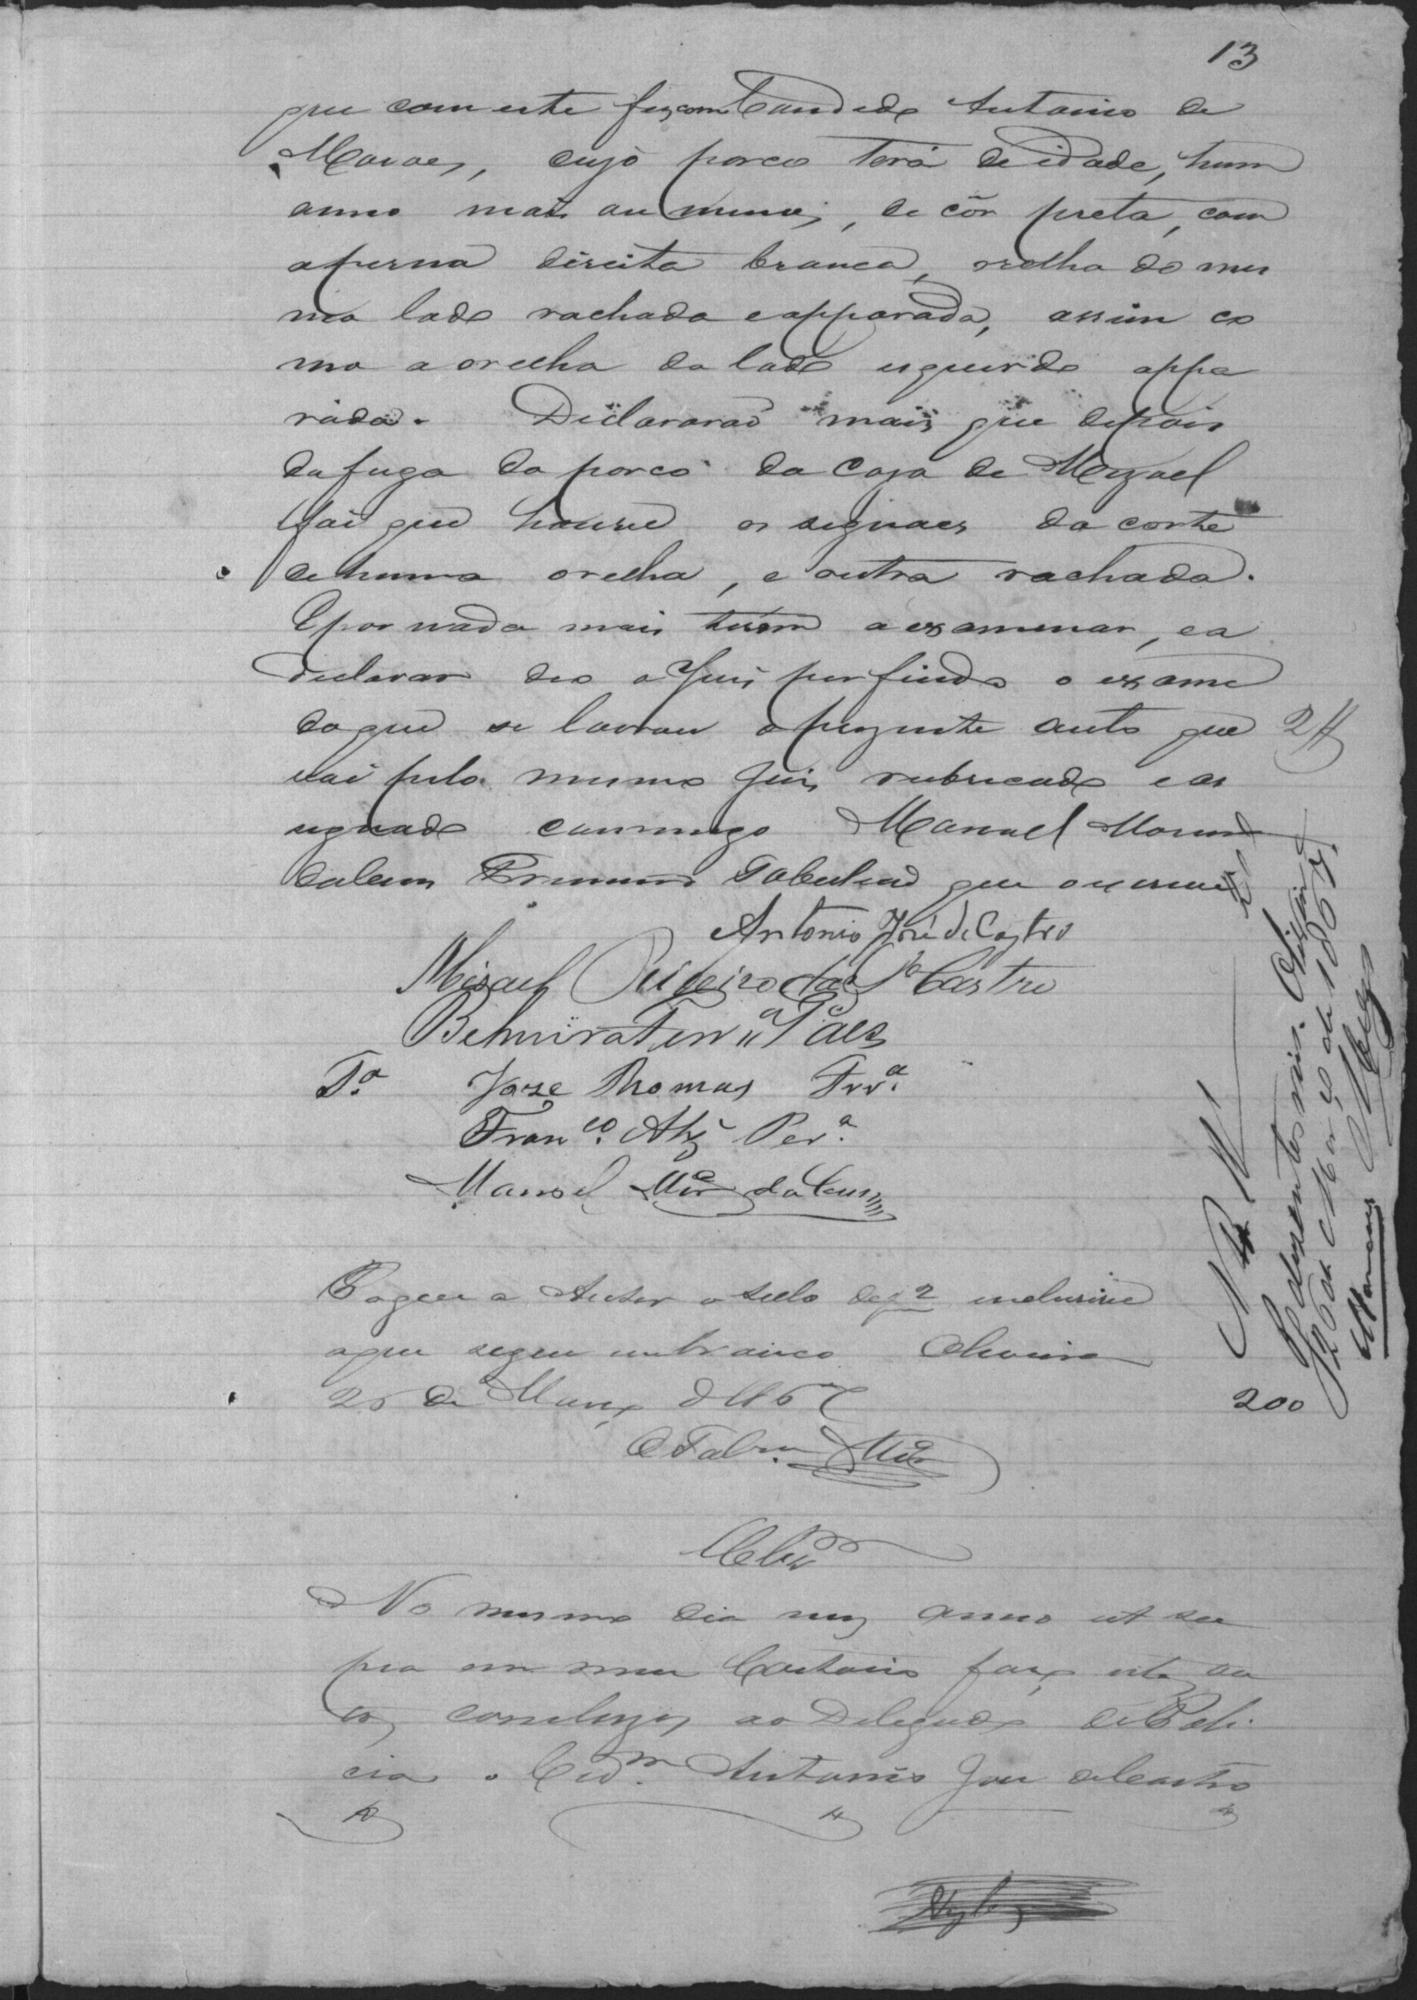 13
que com este fez com Candido Antonio de
Moraes, cujo porco terá de idade, hum
anno mais ou menos, de côr preta, com
a perna direita branca, orelha do mes
mo lado rachada e apparada, assim co
mo a orelha do lado esquerdo appa
rada. Declararão mais que depois
da fuga do porco da casa de Mizael
foi que houve os signaes do corte
de huma orelha, e outra rachada.
E por nada mais terem a examinar, e a
declarar deo o Juis por findo o exame
do que se lavrou o prezente auto que
vai pelo mesmo Juis rubricado e as
signado commigo Manoel
Primeiro Tabelião que o escrevi
Antonio José de Castro
Misael Castro
Paes
Ta. Joze Thomas Frra.
Franco. Alz Pera.
Manoel
200
Pagou o Autor o sello de 2 inclusive
o que segue em branco Oliveira
26 de Março d 1867
O Tabam.
Clzm
No mesmo dia mez anno ut su
pra em meu Cartorio faço estes au
tos conclusos ao Delegado de Poli
cia o Cidm. Antonio Jose de Castro
N
200
Pg duzentos reis. Oliveira
26 de Março de 1867.